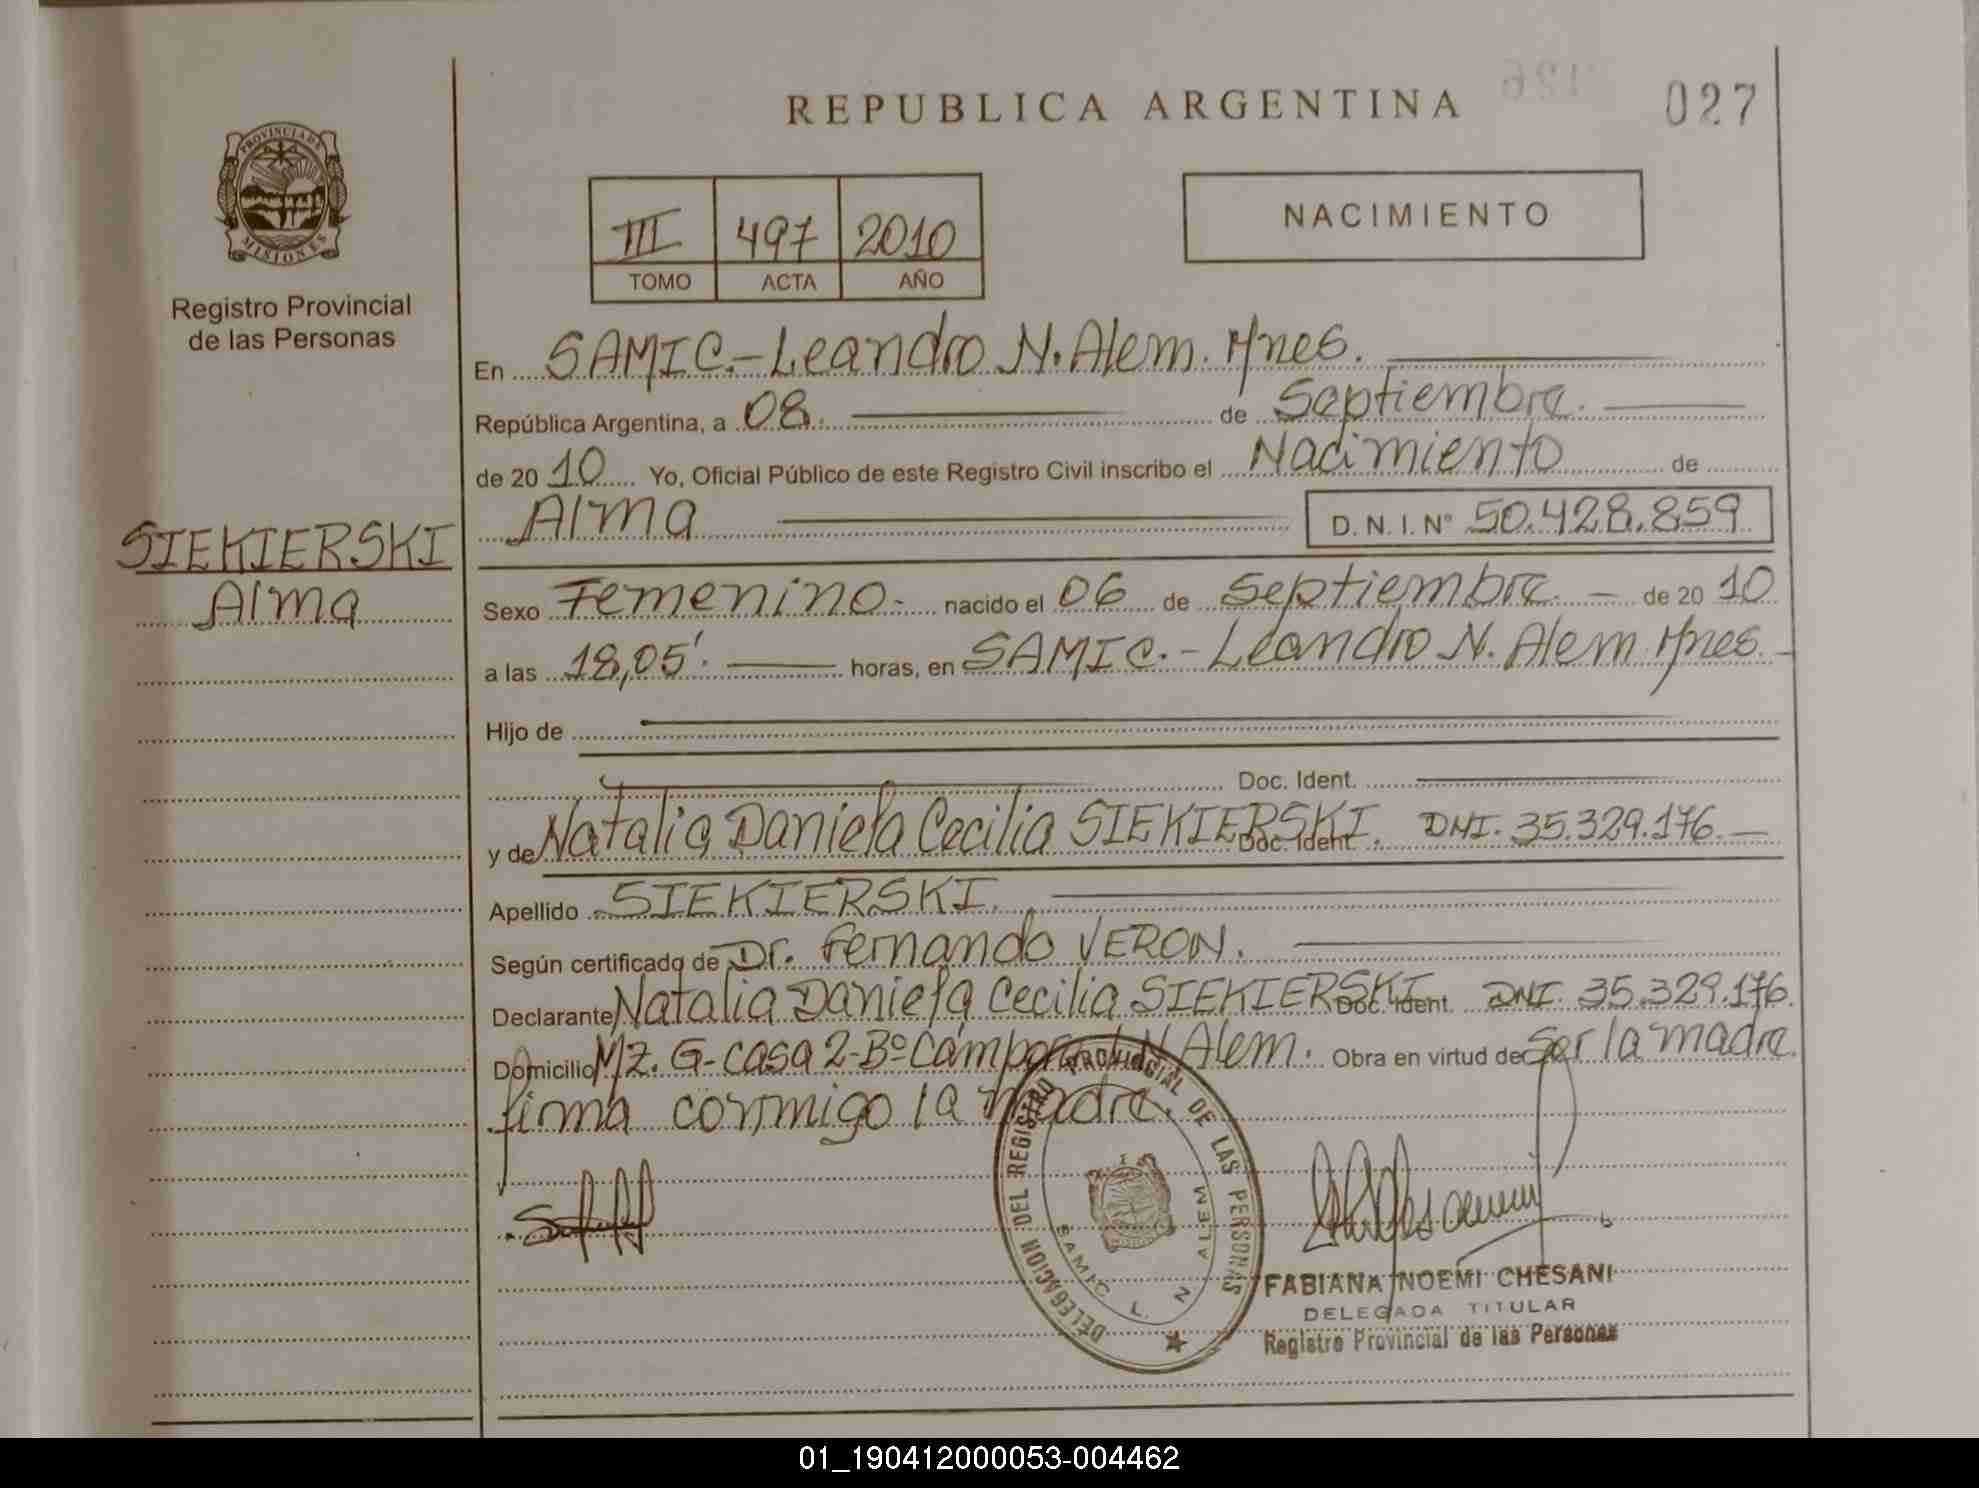 REPUBLICA ARGENTINA
027
PROVINCIA DE
MISIONES
Registro Provincial
de las Personas
III 497 2010
TOMO ACTA AÑO
NACIMIENTO
En SAMIC.-Leandro N. Alem. Mnes.
República Argentina, a 08. de Septiembre.
de 2010 Yo, Oficial Público de este Registro Civil inscribo el Nacimiento de
Alma D. N. I. N° 50.428.859
SIEKIERSKI
Alma
Sexo Femenino.- nacido el 06 de Septiembre. - de 2010
a las 18,05'. horas, en SAMIC.-Leandro N. Alem. Mnes.
Hijo de
Doc. Ident.
y de Natalia Daniela Cecilia SIEKIERSKI. Doc. Ident. DNI. 35.329.176.
Apellido SIEKIERSKI.
Según certificado de Dr. Fernando VERON.
Declarante Natalia Daniela Cecilia SIEKIERSKI Doc. Ident. DNI. 35.329.176.
Domicilio Mz. G-casa 2-Bº Cámpora L.N. Alem. Obra en virtud de Ser la madre.
firma conmigo la madre.
DELEGACION DEL REGISTRO PROVINCIAL DE LAS PERSONAS
SAMIC L. N. ALEM
FABIANA NOEMI CHESANI
DELEGADA TITULAR
Registro Provincial de las Personas
01_190412000053-004462